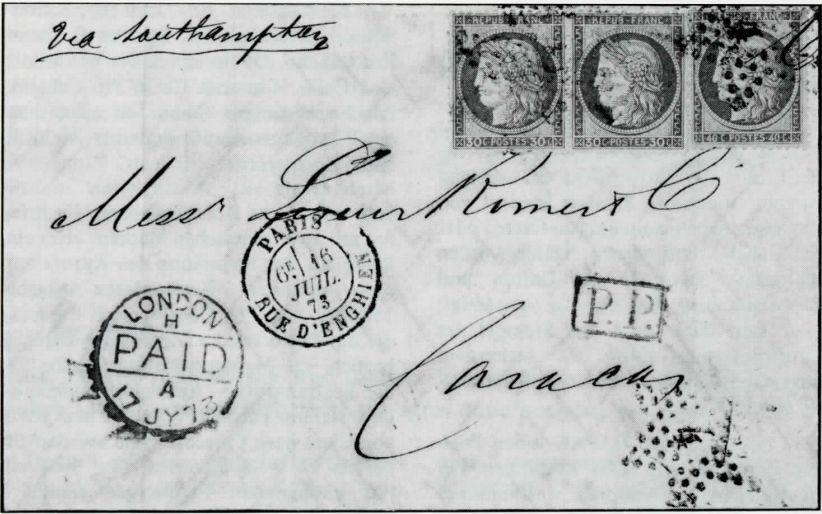 Via Southampton
REPUB·FRANC·
30C·POSTES·30C
REPUB·FRANC·
30C·POSTES·30C
FRANC·
40C·POSTES·40C
Messrs Louis &Cº
PARIS
6E 16
JUIL.
73
RUE D'ENGHIEN
P.P.
LONDON
H
PAID
A
17 JY 73
Caracas